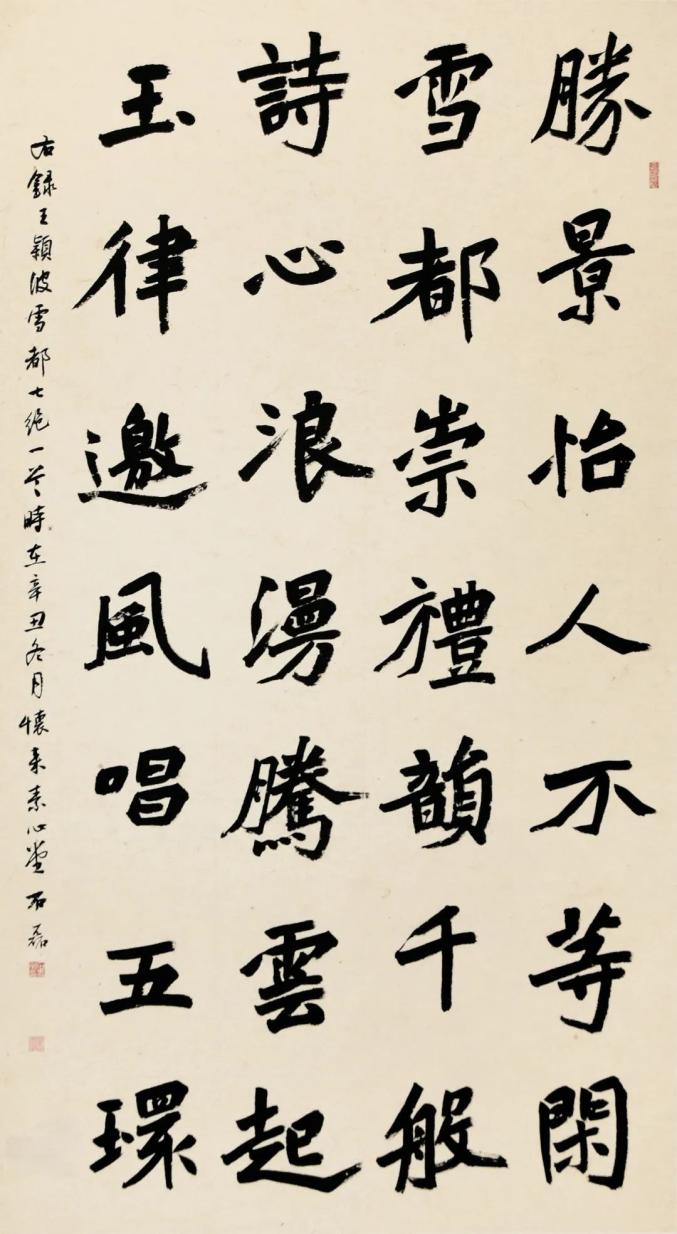 勝景怡人不等閑
雪都崇禮韻千般
詩心浪漫騰雲起
玉律邀風唱五環
右錄王穎波雪都七絕一首時在辛丑冬月懷來素心堂石磊